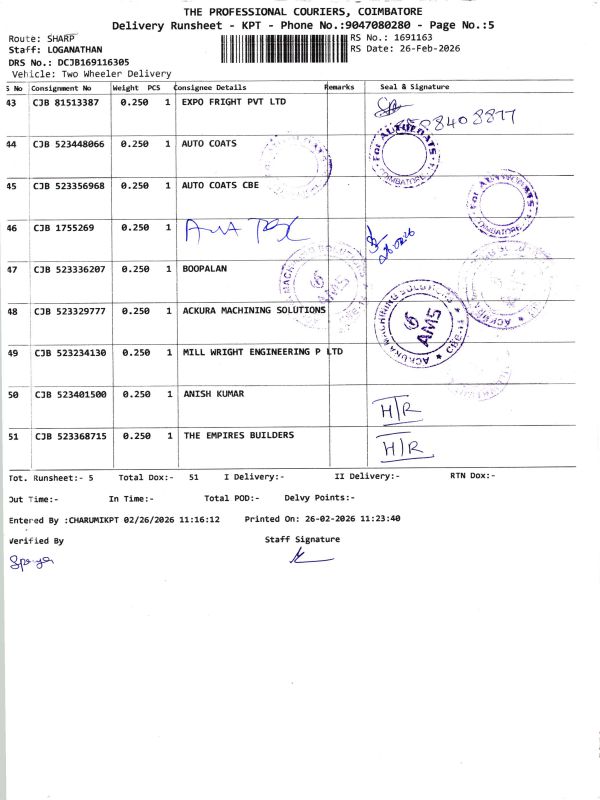 THE PROFESSIONAL COURIERS, COIMBATORE
Delivery Runsheet - KPT - Phone No.:9047080280 - Page No.:5
Route: SHARP
RS No.: 1691163
Staff: LOGANATHAN
RS Date: 26-Feb-2026
DRS No.: DCJB169116305
Vehicle: Two Wheeler Delivery
S No Consignment No Weight PCS Consignee Details Remarks Seal & Signature
43 CJB 81513387 0.250 1 EXPO FRIGHT PVT LTD
44 CJB 523448066 0.250 1 AUTO COATS
For AUTOCOATS COIMBATORE
45 CJB 523356968 0.250 1 AUTO COATS CBE
For AUTOCOATS COIMBATORE
46 CJB 1755269 0.250 1
47 CJB 523336207 0.250 1 BOOPALAN
48 CJB 523329777 0.250 1 ACKURA MACHINING SOLUTIONS
ACKURA MACHINING SOLUTIONS AMS
49 CJB 523234130 0.250 1 MILL WRIGHT ENGINEERING P LTD
50 CJB 523401500 0.250 1 ANISH KUMAR H/R
51 CJB 523368715 0.250 1 THE EMPIRES BUILDERS H/R
Tot. Runsheet:- 5 Total Dox:- 51 I Delivery:- II Delivery:- RTN Dox:-
Out Time:- In Time:- Total POD:- Delvy Points:-
Entered By :CHARUMIKPT 02/26/2026 11:16:12 Printed On: 26-02-2026 11:23:40
Verified By Staff Signature